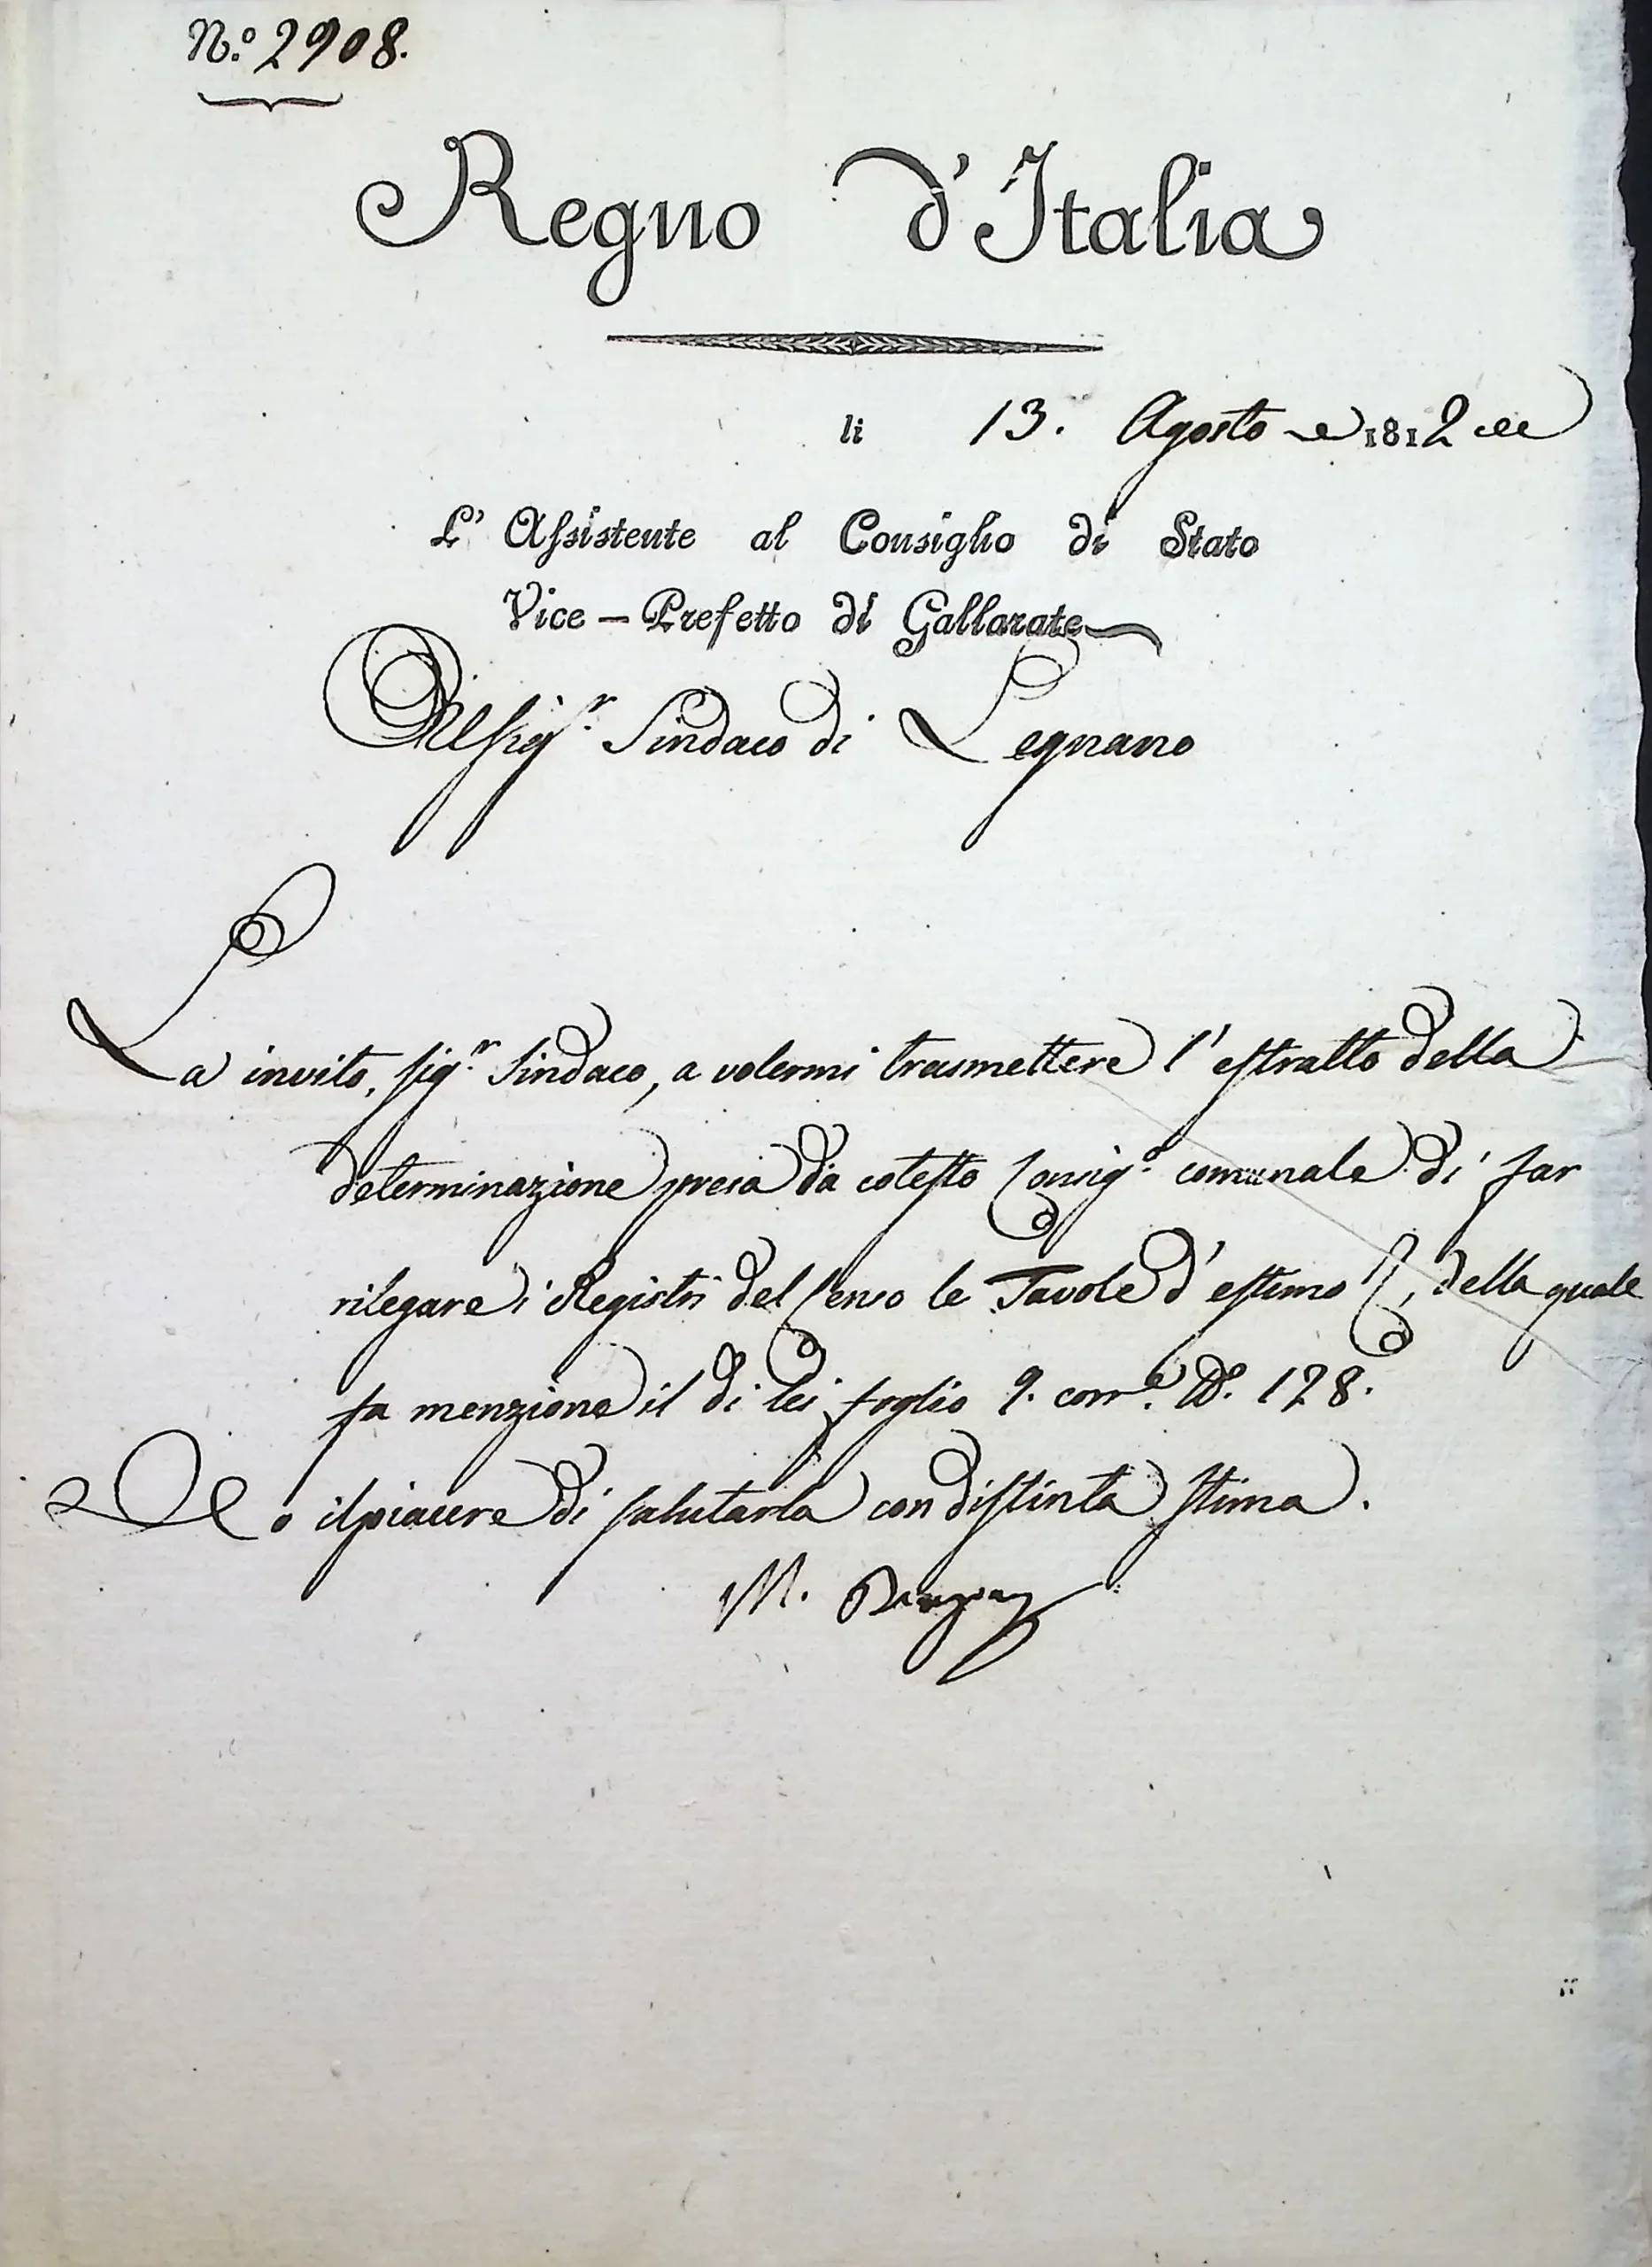 N.º 2908.
Regno d'Italia
li 13. Agosto 1812
L' Assistente al Consiglio di Stato
Vice-Prefetto di Gallarate
Al Sig.r Sindaco di Legnano
La invito, Sig.r Sindaco, a volermi trasmettere l'estratto della
determinazione presa da cotesto Consig.o comunale di far
rilegare i Registri del Censo le Tavole d'estimo &, della quale
fa menzione il di lei foglio 9. corr.e N.º 128.
Ho il piacere di salutarla con distinta stima.
M.